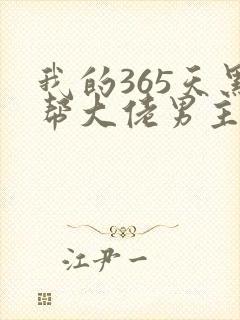 我的365天黑
帮大佬男主
江尹一